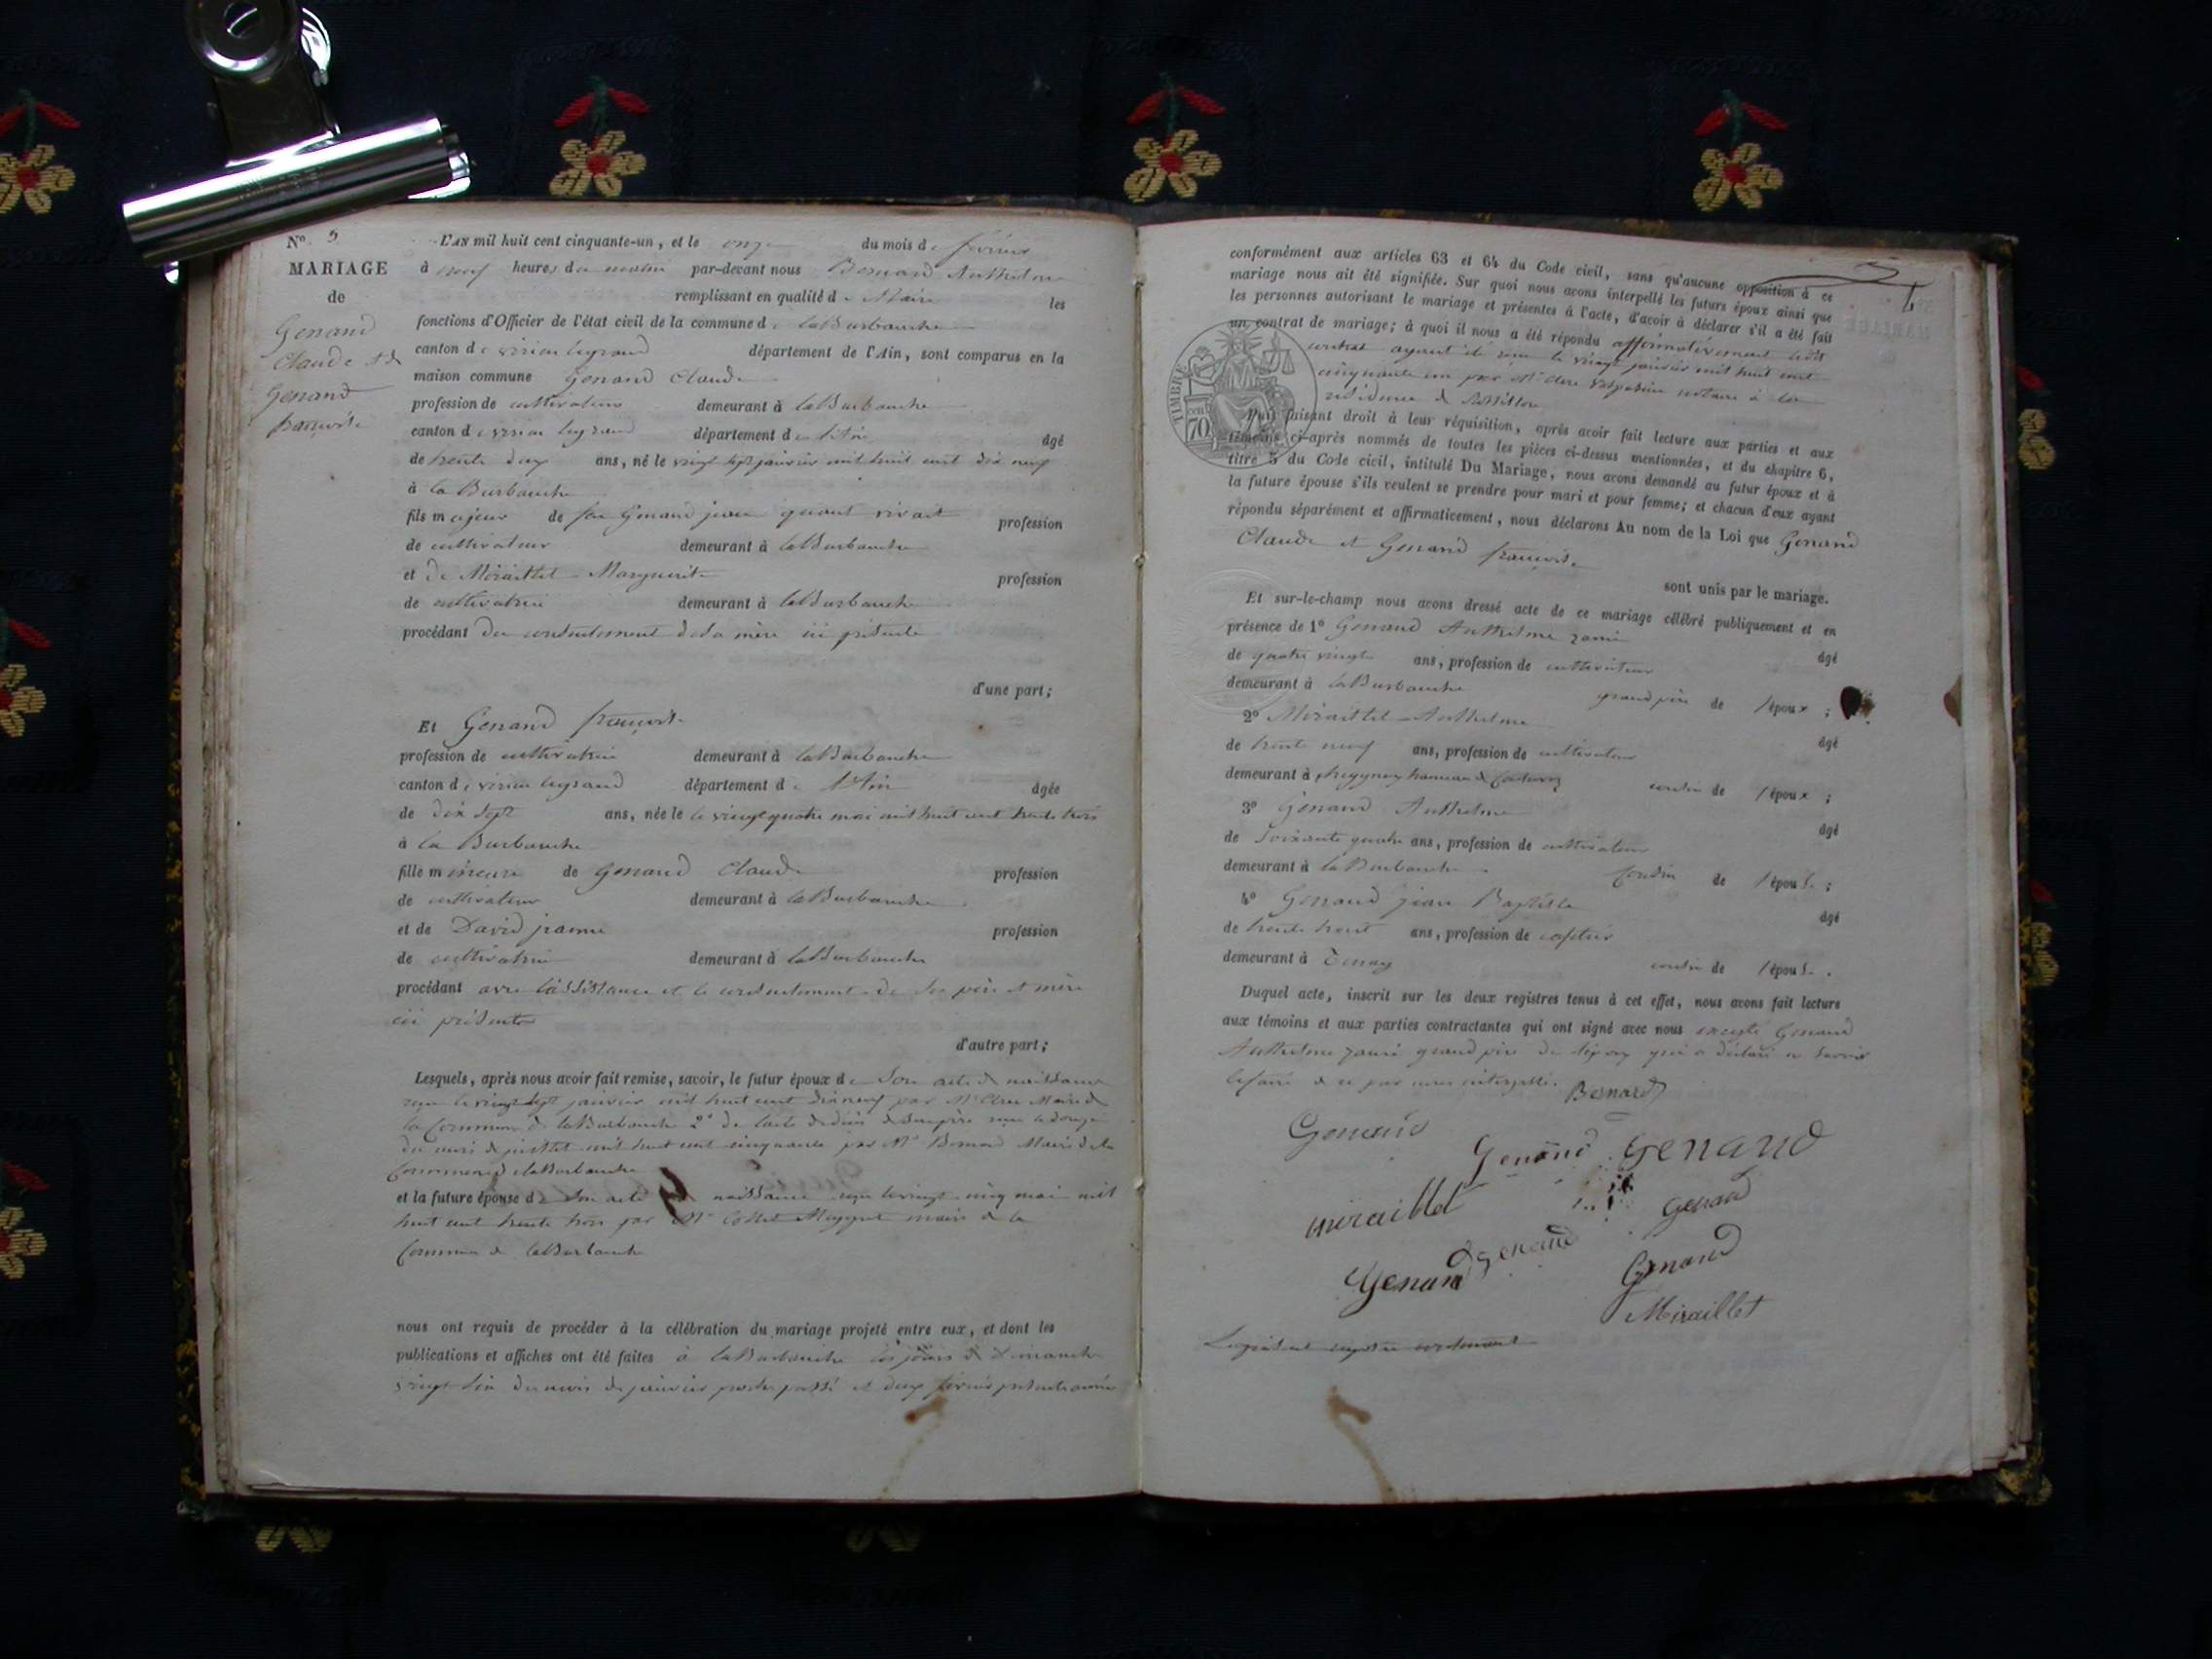 N° 5
MARIAGE
de
Genand
Claude et de
Genand
françoise
L'AN mil huit cent cinquante-un, et le onze du mois de février
à neuf heures du matin par-devant nous Bernard Anthelme
remplissant en qualité de Maire les
fonctions d'Officier de l'état civil de la commune de la Burbanche
canton de virieu legrand département de l'Ain, sont comparus en la
maison commune Genand Claude
profession de cultivateur demeurant à la Burbanche
canton de virieu legrand département de l'Ain âgé
de trente deux ans, né le vingt sept janvier mil huit cent dix neuf
à la Burbanche
fils majeur de feu Genand jean quant vivait profession
de cultivateur demeurant à la Burbanche
et de Miraillet Marguerite profession
de cultivatrice demeurant à la Burbanche
procédant du consentement de sa mère ici présente
d'une part;
Et Genand françoise
profession de cultivatrice demeurant à la Burbanche
canton de virieu legrand département de l'Ain âgée
de dix sept ans, née le le vingt quatre mai mil huit cent trente trois
à la Burbanche
fille mineure de Genand Claude profession
de cultivateur demeurant à la Burbanche
et de David jeanne profession
de cultivatrice demeurant à la Burbanche
procédant avec l'assistance et le consentement de ses père et mère
ici présents
d'autre part;
Lesquels, après nous avoir fait remise, savoir, le futur époux de son acte de naissance
reçu le vingt sept janvier mil huit cent dix neuf par Mr Maire de
la Commune de la Burbanche 2° de l'acte de décès de son père reçu le douze
du mois de juillet mil huit cent cinquante par Mr Bernard Maire de la
Commune de la Burbanche
et la future épouse de son acte de naissance reçu le vingt cinq mai mil
huit cent trente trois par Mr Collet Maire de la
Commune de la Burbanche
nous ont requis de procéder à la célébration du mariage projeté entre eux, et dont les
publications et affiches ont été faites à la Burbanche les jours de dimanche
vingt six du mois de janvier passé et deux février présente année
conformément aux articles 63 et 64 du Code civil, sans qu'aucune opposition à ce
mariage nous ait été signifiée. Sur quoi nous avons interpellé les futurs époux ainsi que
les personnes autorisant le mariage et présentes à l'acte, d'avoir à déclarer s'il a été fait
un contrat de mariage; à quoi il nous a été répondu affirmativement ledit
contrat ayant été reçu le vingt janvier mil huit cent
cinquante un par Mr notaire à la
résidence de Rossillon
TIMBRE
70
Puis faisant droit à leur réquisition, après avoir fait lecture aux parties et aux
témoins ci-après nommés de toutes les pièces ci-dessus mentionnées, et du chapitre 6,
titre 5 du Code civil, intitulé Du Mariage, nous avons demandé au futur époux et à
la future épouse s'ils veulent se prendre pour mari et pour femme; et chacun d'eux ayant
répondu séparément et affirmativement, nous déclarons Au nom de la Loi que Genand
Claude et Genand françoise
sont unis par le mariage.
Et sur-le-champ nous avons dressé acte de ce mariage célébré publiquement et en
présence de 1° Genand Anthelme
âgé
de quatre vingt ans, profession de cultivateur
demeurant à la Burbanche grand père de l'époux;
2° Miraillet Anthelme
âgé
de trente neuf ans, profession de cultivateur
demeurant à hameau de cousin de l'époux;
3° Genand Anthelme
âgé
de soixante quatre ans, profession de cultivateur
demeurant à la Burbanche cousin de l'épouse;
4° Genand jean Baptiste
âgé
de trente huit ans, profession de cafetier
demeurant à Tenay cousin de l'épouse.
Duquel acte, inscrit sur les deux registres tenus à cet effet, nous avons fait lecture
aux témoins et aux parties contractantes qui ont signé avec nous excepté Genand
Anthelme grand père de l'époux qui a déclaré ne savoir
le faire de ce par nous interpellé. Bernard
Genand
Genand Genand
miraillet Genand
Dgenand
Genand Genand
Miraillet